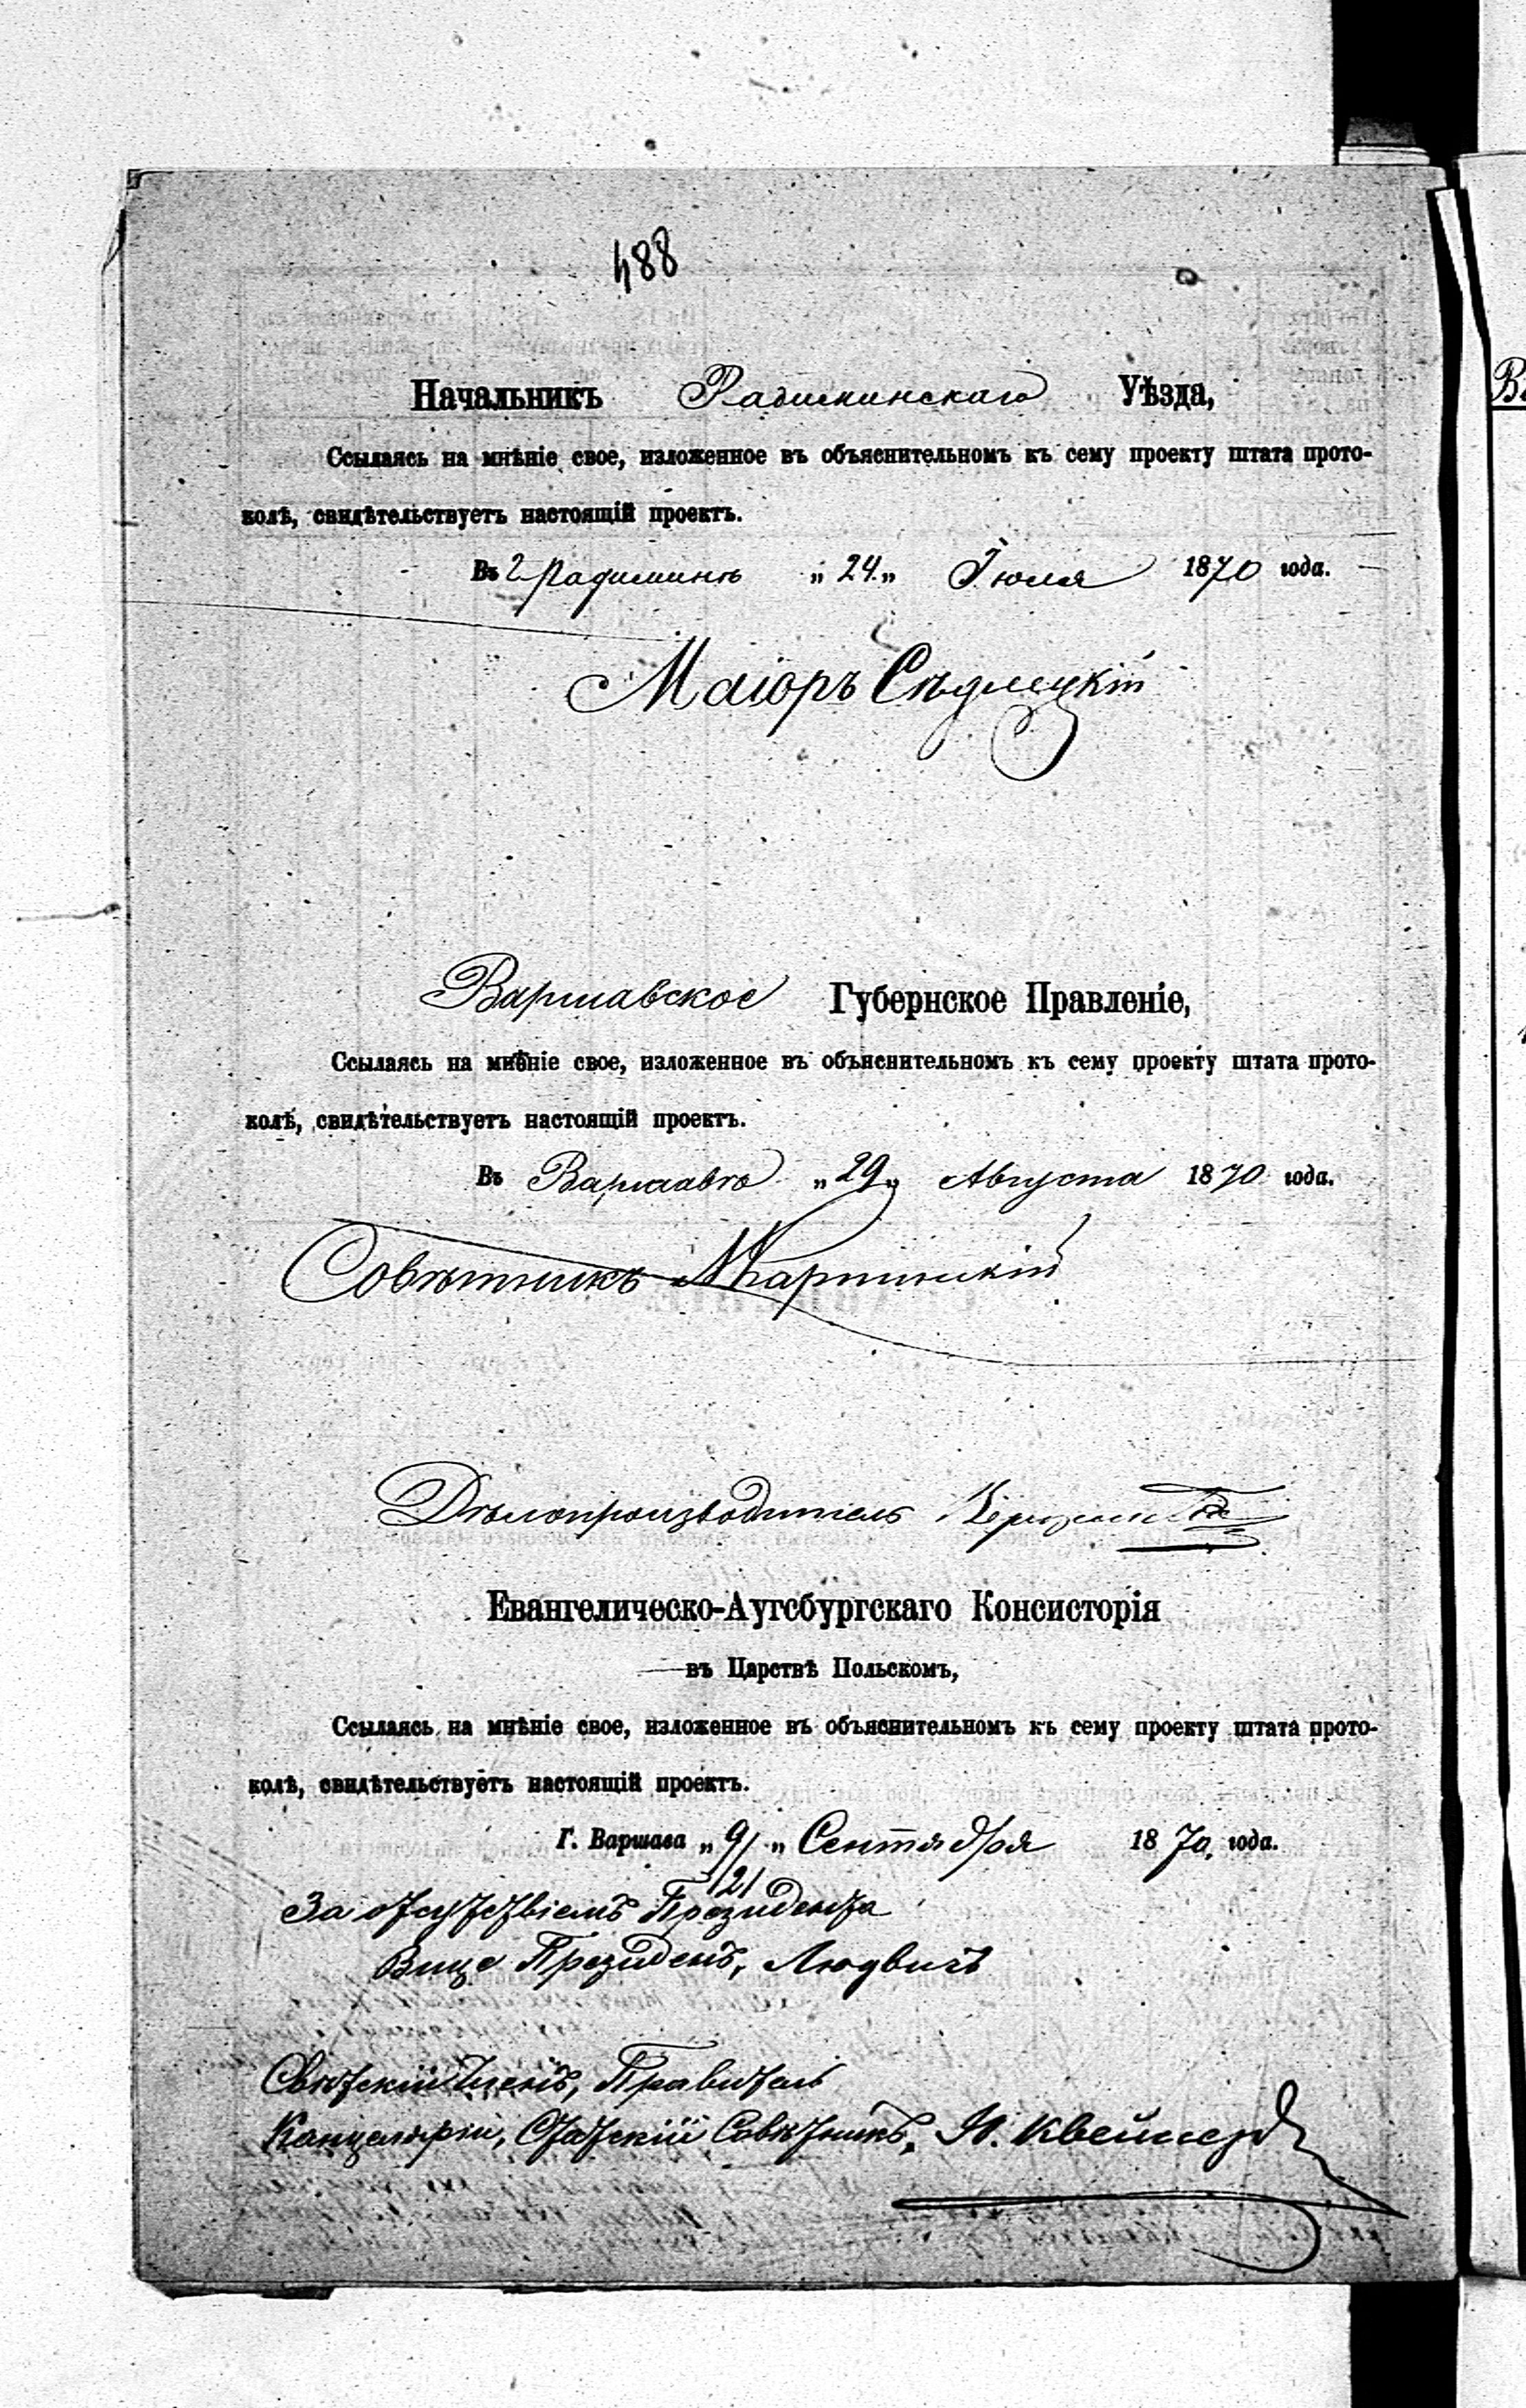 488
Начальникъ Радиминскаго Уѣзда,
Ссылаясь на мнѣніе свое, изложенное въ объяснительномъ къ сему проекту штата прото-
колѣ, свидѣтельствуетъ настоящій проектъ.
Въ г Радиминѣ „ 24 „ Іюля 1870 года.
Маіоръ Сѣдлецкій
Варшавское Губернское Правленіе,
Ссылаясь на мнѣніе свое, изложенное въ объяснительномъ къ сему проекту штата прото-
колѣ, свидѣтельствуетъ настоящій проектъ.
Въ Варшавѣ „ 29 „ Августа 1870 года.
Совѣтникъ
Дѣлопроизводитель
Евангелическо-Аугсбургскаго Консисторія
въ Царствѣ Польскомъ,
Ссылаясь на мнѣніе свое, изложенное въ объяснительномъ къ сему проекту штата прото-
колѣ, свидѣтельствуетъ настоящій проектъ.
Г. Варшава „ 9/21 „ Сентября 1870, года.
За отсутствіемъ Президента
Вице Президентъ, Людвигъ
Свѣтскій Членъ, Правитель
Канцеляріи, Статскій Совѣтникъ,